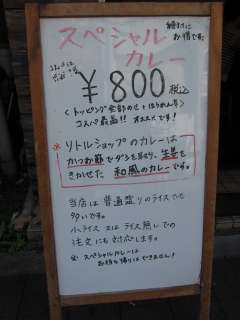 スペシャル
カレー
¥800 税込
<トッピング全部のせ+ほうれん草>
コスパ最高!! オススメです!
※リトルショップのカレーは
かつお節でダシを取り、生姜を
きかせた 和風のカレーです。
当店は普通盛りのライスでも
多いです。
小ライス 又は ライス無しでの
注文にも対応します。
※ スペシャルカレーは
お持ち帰りはできません!